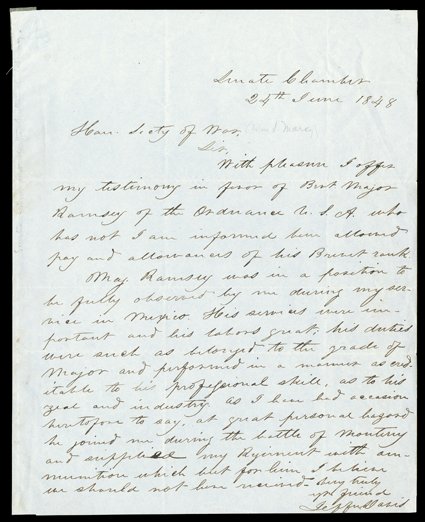 Senate Chamber
24th June 1848
Hon. Secty of War
Sir,
With pleasure I offer
my testimony in favor of Bvt Major
Ramsey of the Ordnance U.S.A. who
has not I am informed been allowed
pay and allowances of his Brevet rank.
Maj. Ramsey was in a position to
be fully observed by me during my ser-
vice in Mexico. His services were im-
portant and his labors great; his duties
were such as belonged to the grade of
Major and performed in a manner as cred-
itable to his professional skill, as to his
zeal and industry. As I have had occasion
heretofore to say, at great personal hazard
he joined me during the battle of Monterey
and supplied my Regiment with am-
munition which but for him, I believe
we should not have received- Very truly
yr. friend
Jeffn. Davis